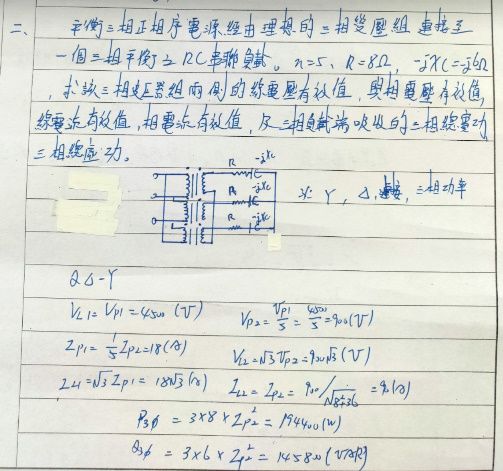 二、 平衡三相正相序電源經由理想的三相變壓組連接至
一個三相平衡之RC串聯負載。n=5、R=8Ω, -jXc=-j6Ω
,求該三相變壓器組兩側的線電壓有效值,與相電壓有效值,
線電流有效值,相電流有效值,及三相負載端吸收的三相總實功
三相總虛功。
R -jXc
R -jXc
R -jXc
求 Y, Δ, 三相功率
Δ-Y
VL1=Vp1=4500(V) Vp2=Vp1/5=4500/5=900(V)
Ip1=1/5 Ip2=18(A) VL2=√3 Vp2=900√3(V)
IL1=√3 Ip1=18√3(A) IL2=Ip2=900/√8²+36=90(A)
P3φ=3×8×Ip2²=194400(W)
Q3φ=3×6×Ip2²=145800(VAR)